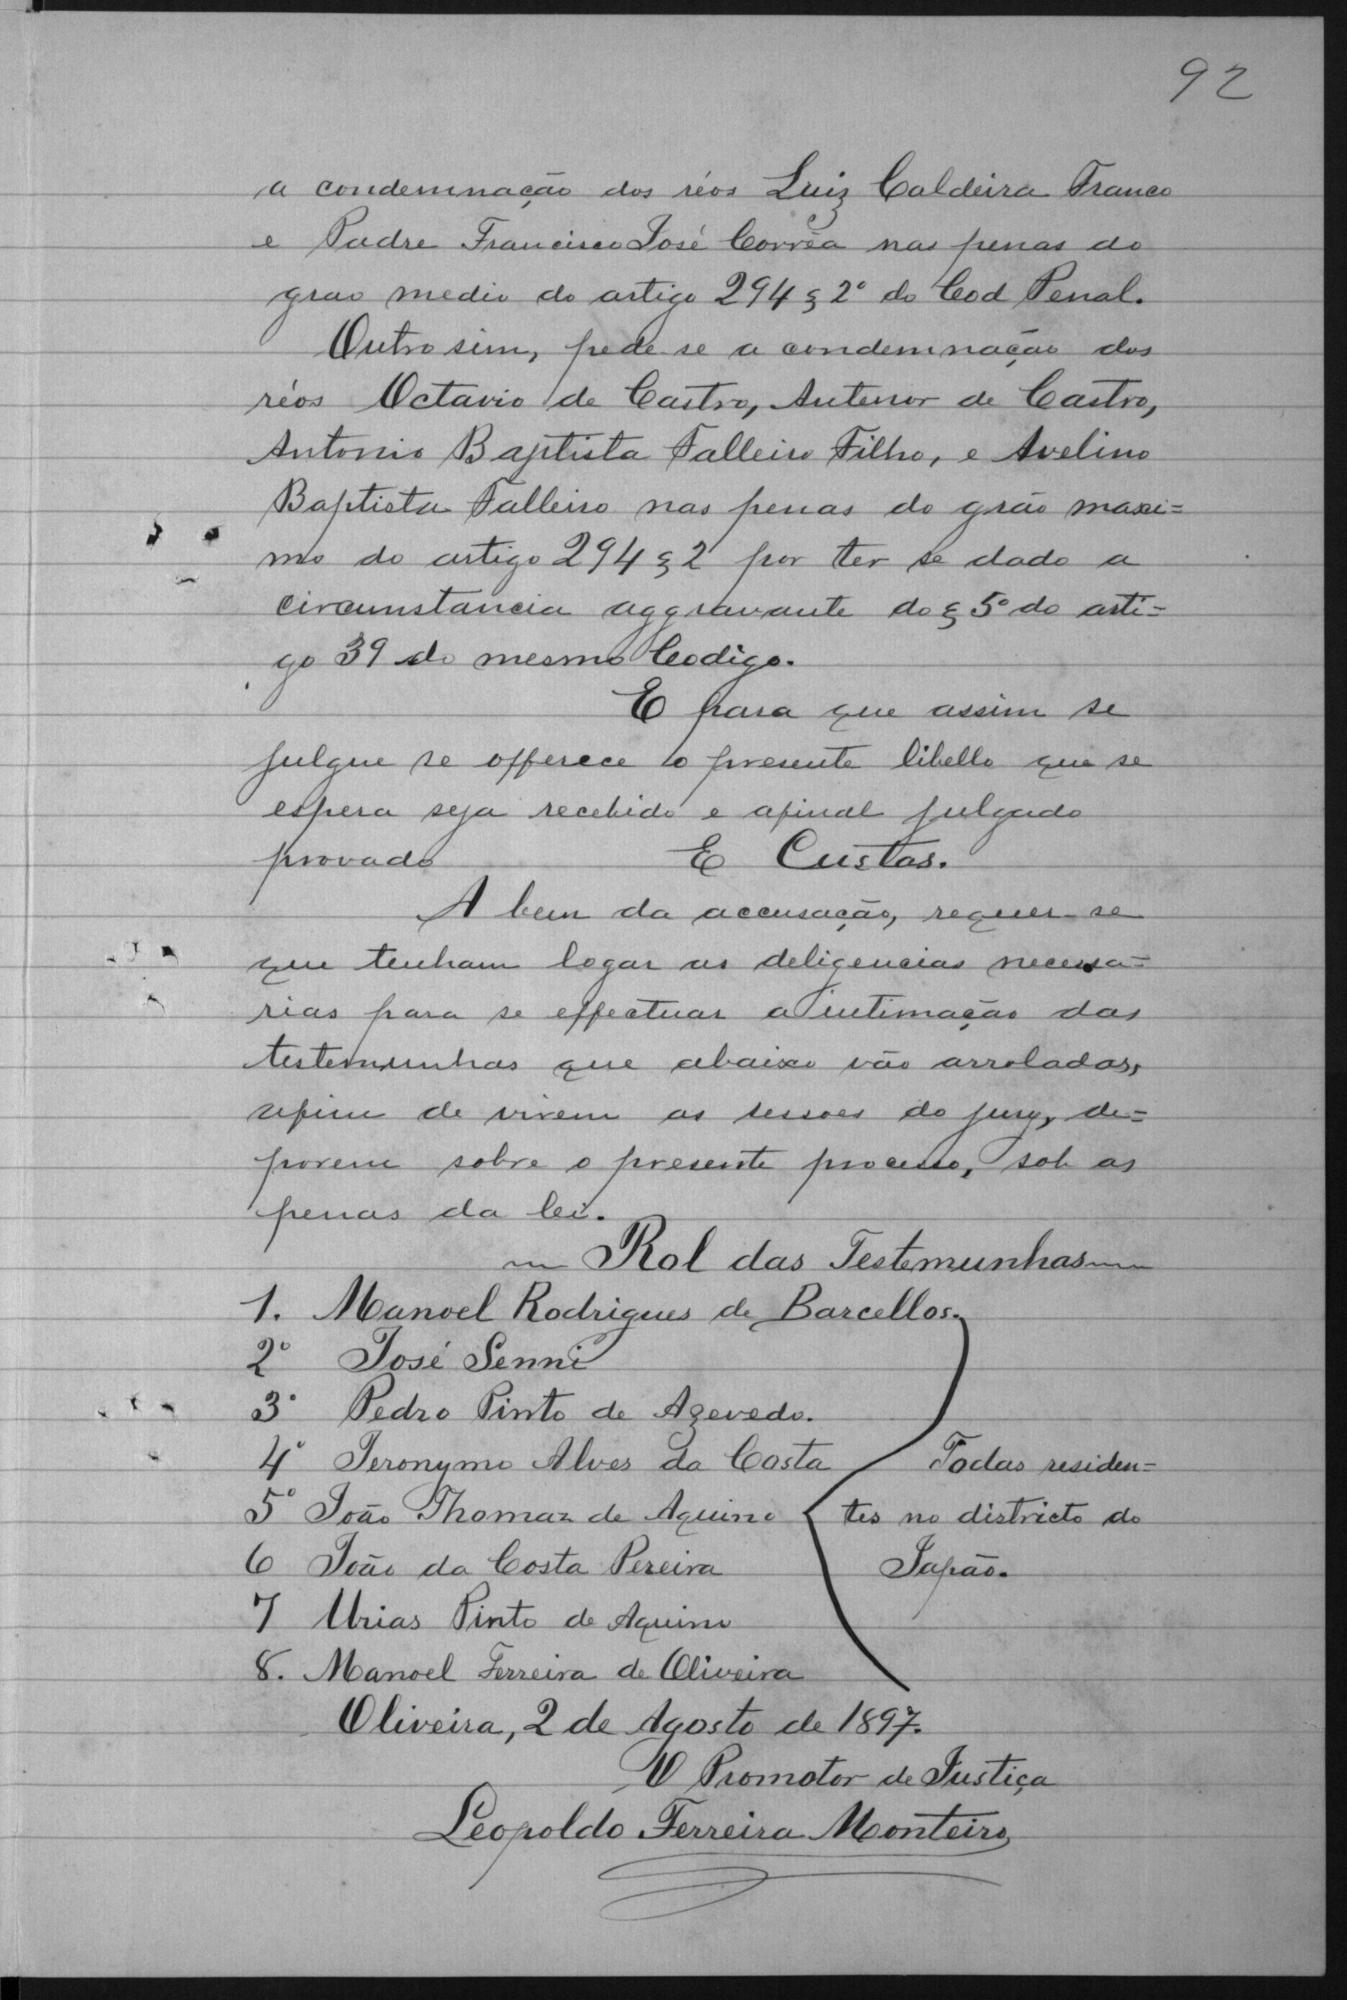 92
a condemnação dos réos Luiz Caldeira Franco
e Padre Francisco José Corrêa nas penas do
grao medio do artigo 294 § 2º do Cod Penal.
Outro sim, pede-se a condemnação dos
réos Octavio de Castro, Antenor de Castro,
Antonio Baptista Falleiro Filho, e Avelino
Baptista Falleiro nas penas do grão maxi=
mo do artigo 294 § 2 por ter se dado a
circumstancia aggravante do § 5º do arti=
go 39 do mesmo Codigo.
E para que assim se
julgue se offerece o presente libello que se
espera seja recebido e afinal julgado
provado E Custas.
A bem da accusação, requer-se
que tenham logar as deligencias necessa=
rias para se effectuar a intimação das
testemunhas que abaixo vão arroladas,
afim de virem as sessoes do jury, de=
porem sobre o presente processo, sob as
penas da lei.
Rol das Testemunhas
1. Manoel Rodrigues de Barcellos.
2º José Senni
3º Pedro Pinto de Azevedo.
4º Jeronymo Alves da Costa Todas residen=
5º João Thomaz de Aquino tes no districto do
6 João da Costa Pereira Japão.
7 Urias Pinto de Aquino
8. Manoel Ferreira de Oliveira
Oliveira, 2 de Agosto de 1897.
O Promotor de Justiça
Leopoldo Ferreira Monteiro